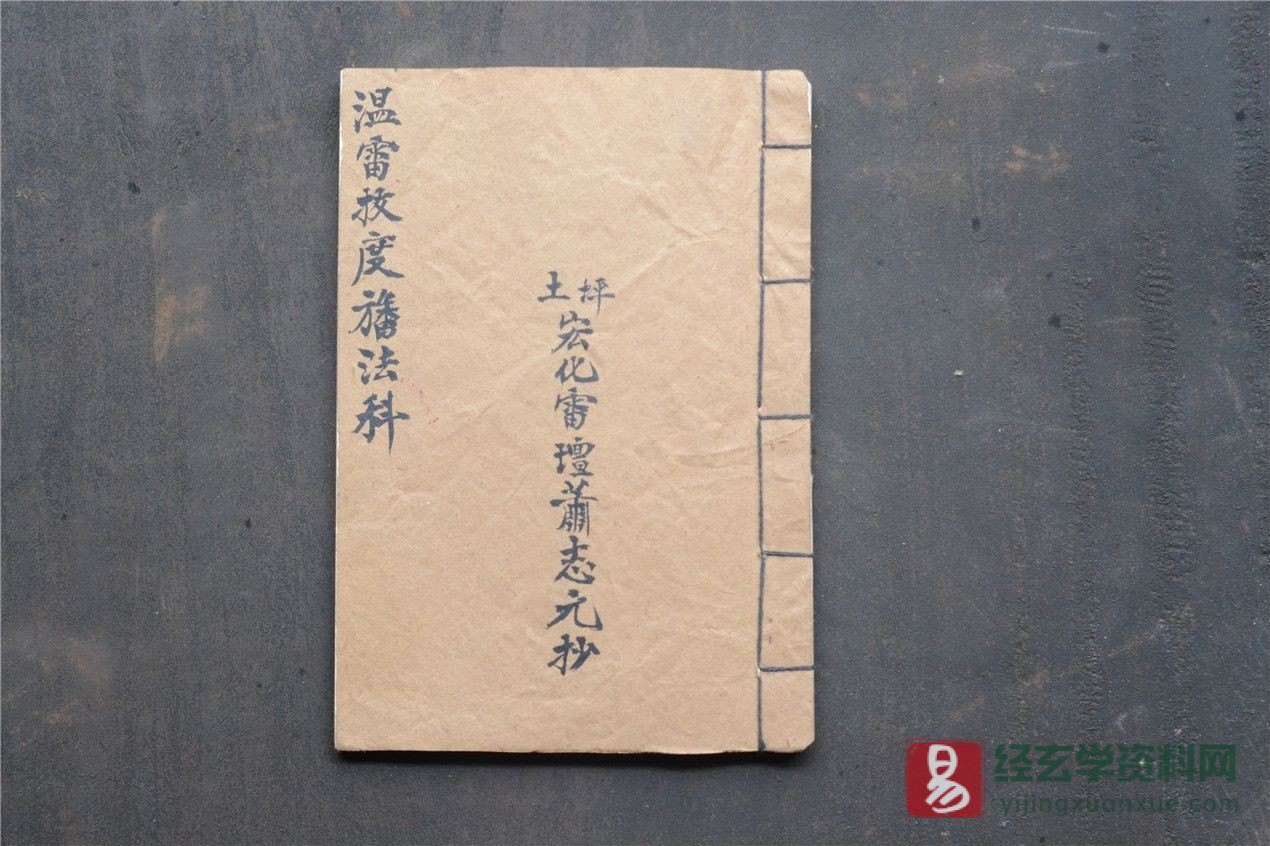 温雷拔度旛法科
土坪
宏化雷壇蕭志元抄
易 经玄学资料网
yijingxuanxue.com